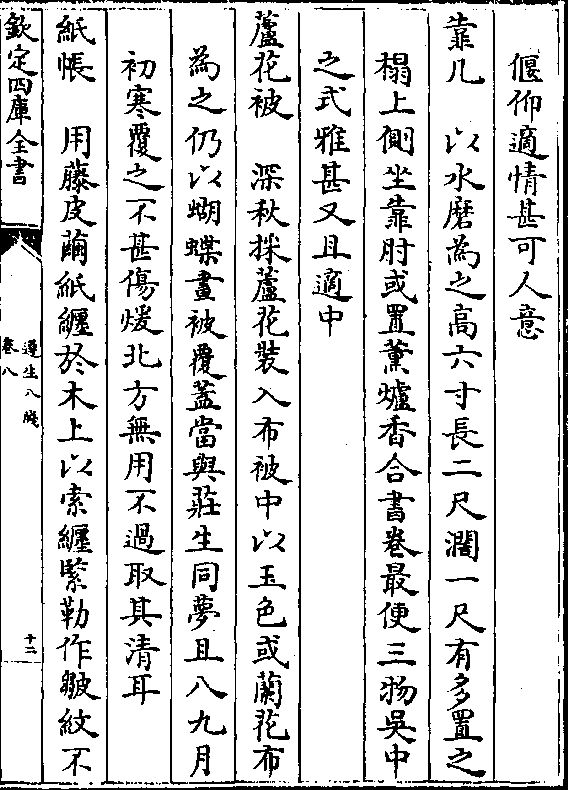 偃仰適情甚可人意
靠几　以水磨為之高六寸長二尺濶一尺有多置之
榻上側坐靠肘或置薰爐香合書卷最便三物吳中
之式雅甚又且適中
蘆花被　深秋採蘆花裝入布被中以玉色或蘭花布
為之仍以蝴蝶畫被覆蓋當與莊生同夢且八九月
初寒覆之不甚傷煖北方無用不過取其清耳
紙帳　用藤皮繭紙纏於木上以索纏緊勒作皺紋不
欽定四庫全書
遵生八牋
卷八
十二